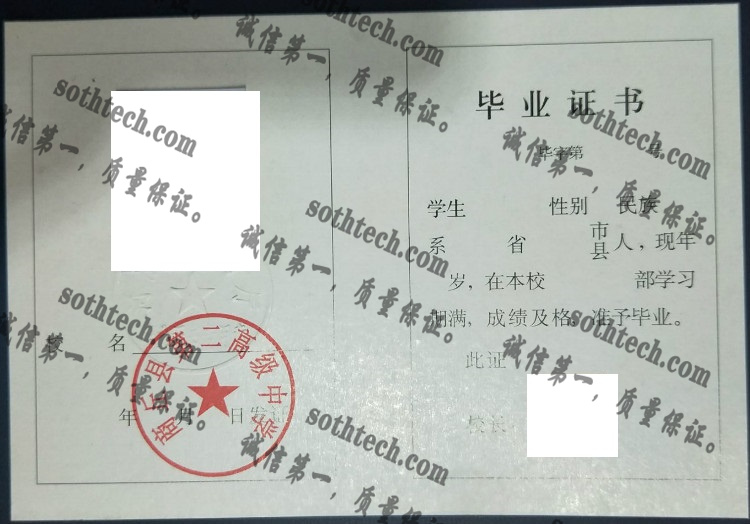 毕业证书
毕字第 号
学生 性别 民族
系 省 市县人，现年
岁，在本校 部学习
期满，成绩及格，准予毕业。
此证
校长
名
年 月 日发证
商丘县第二高级中学
sothtech.com
诚信第一，质量保证。
sothtech.com
诚信第一，质量保证。
sothtech.com
诚信第一，质量保证。
sothtech.com
诚信第一，质量保证。
sothtech.com
诚信第一，质量保证。
sothtech.com
诚信第一，质量保证。
sothtech.com
诚信第一，质量保证。